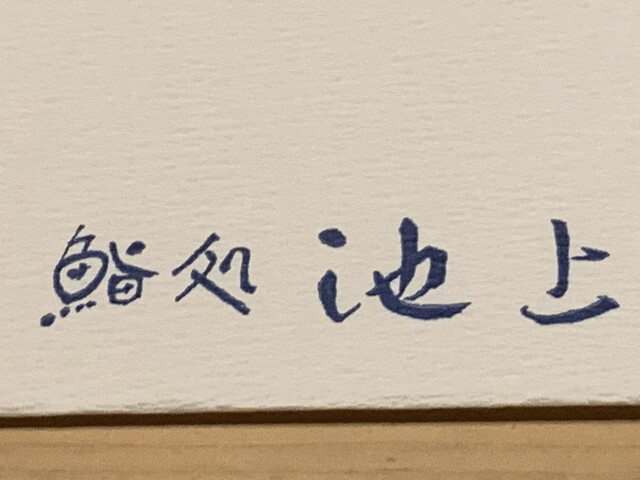 鮨処 池上